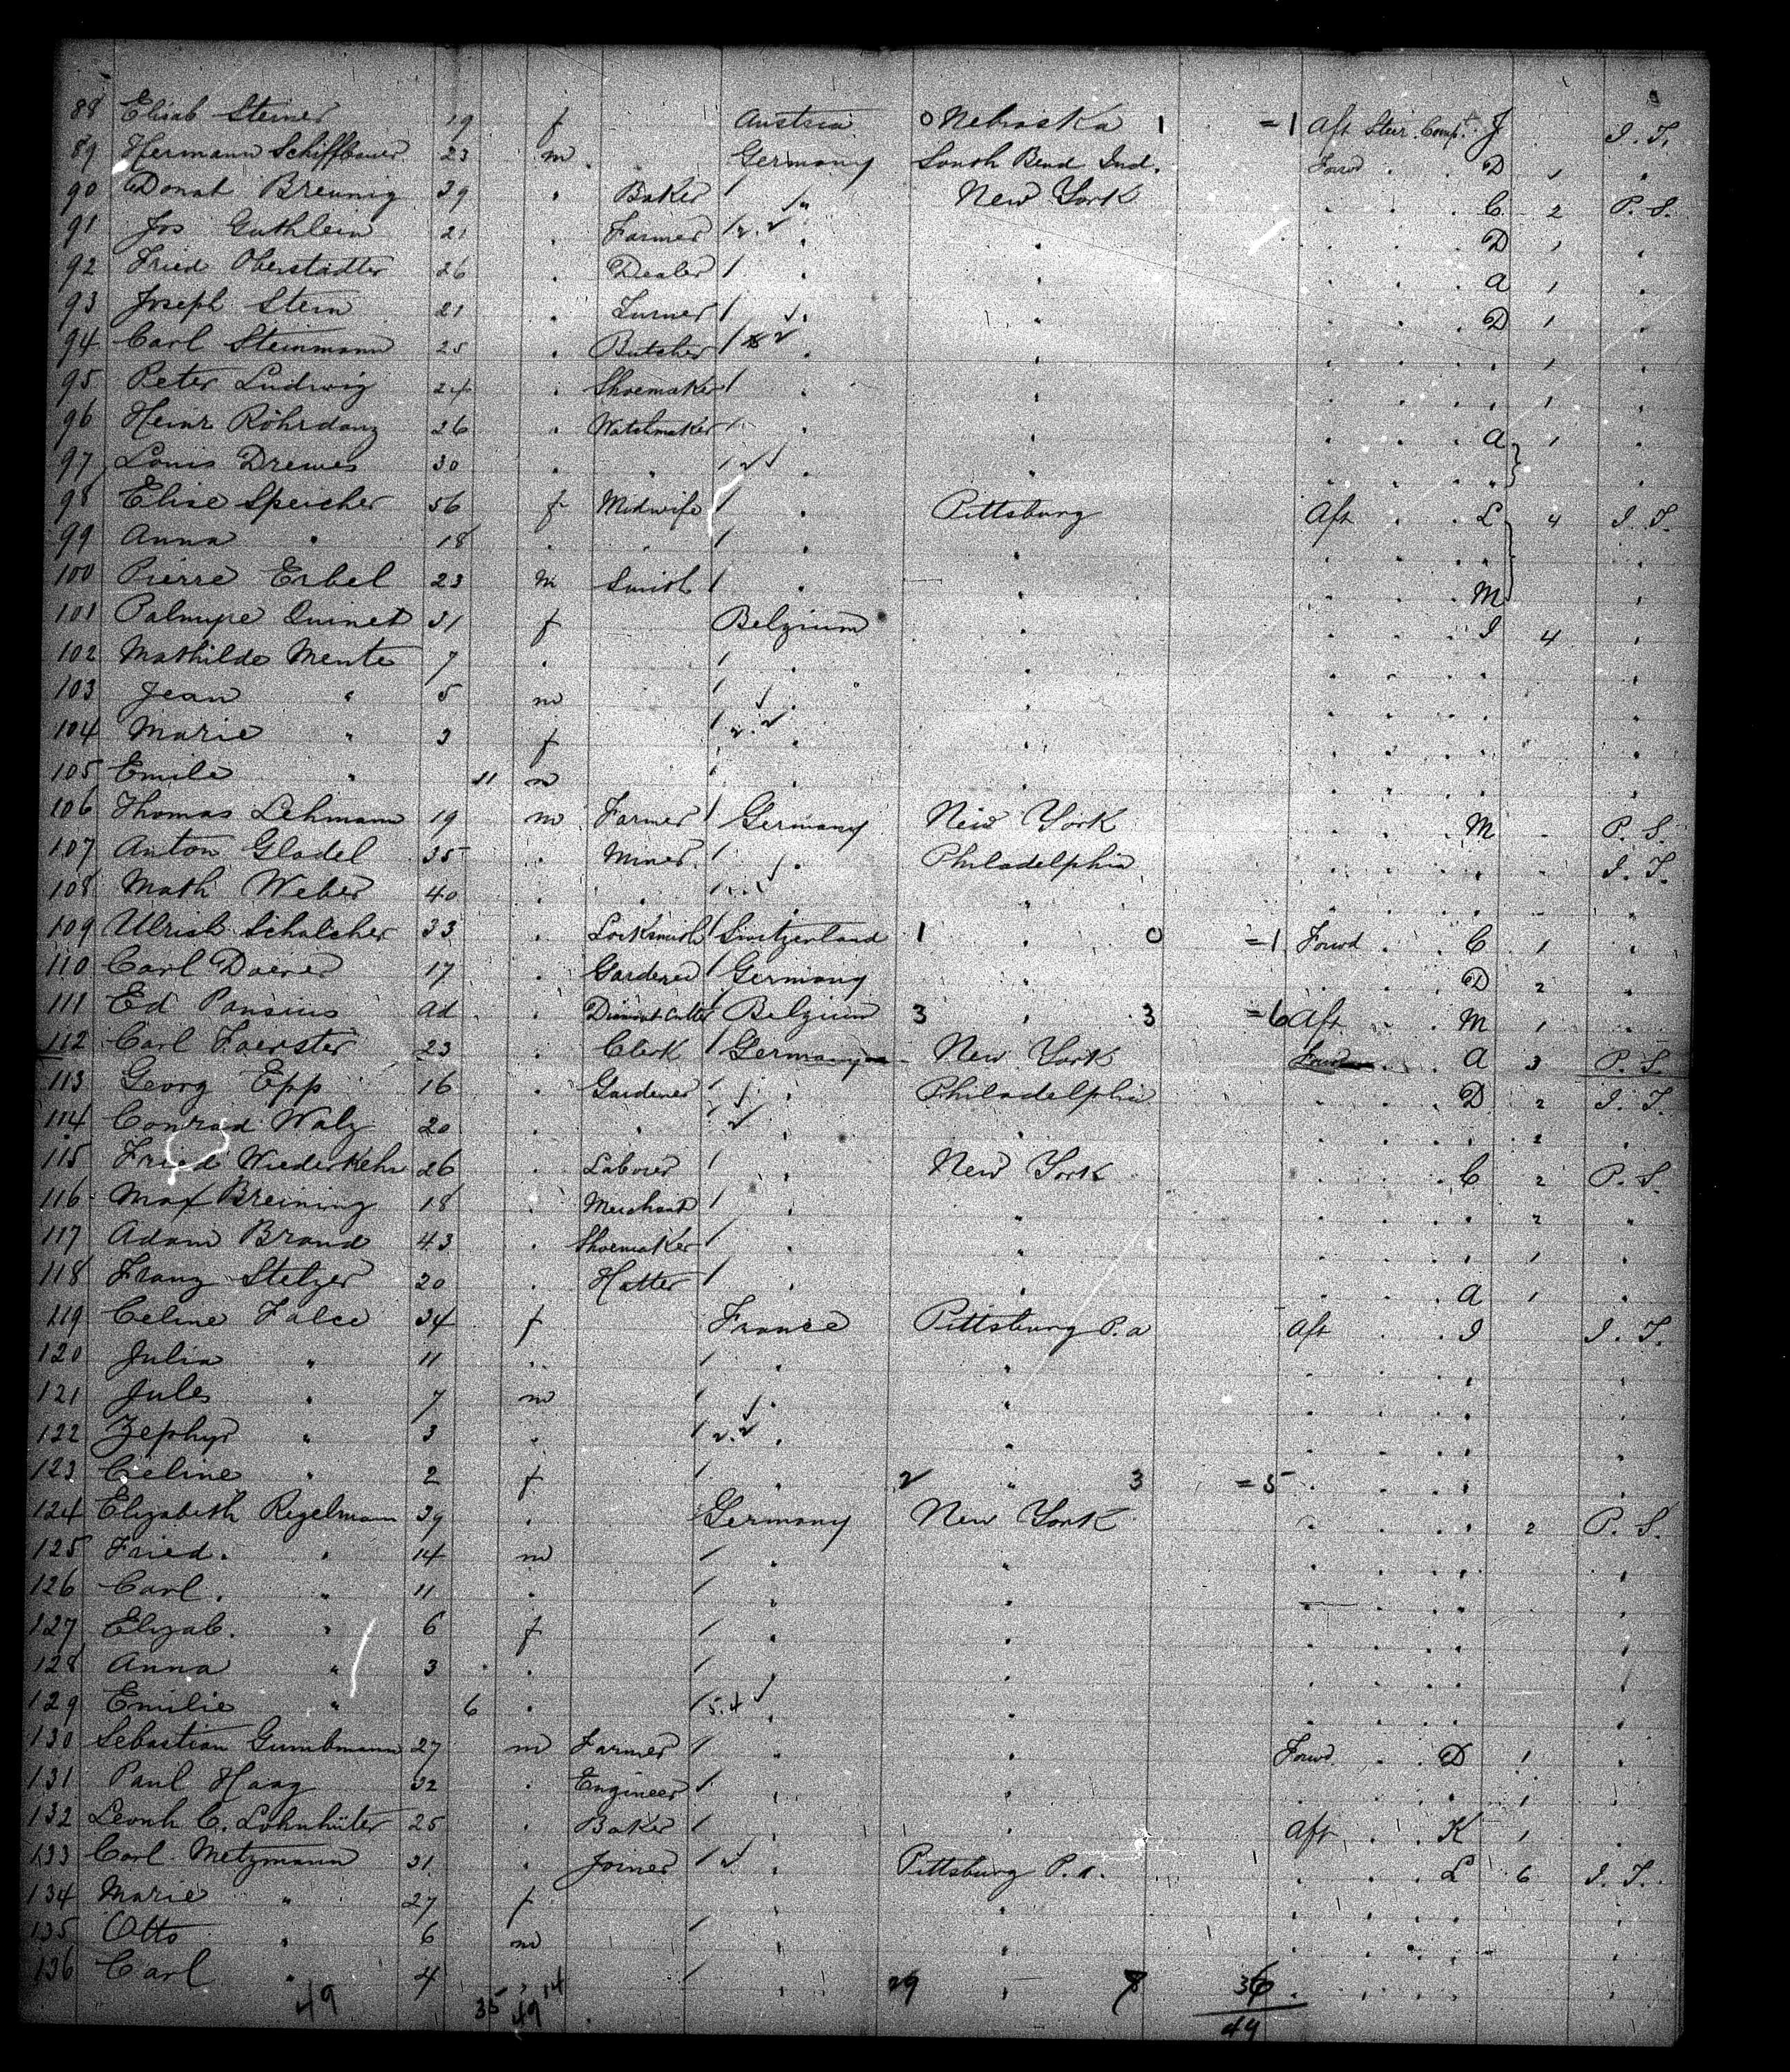 88 Elisab Steiner 19 f Austria 0 Nebraska 1 =1 Aft Steer. Compt. J I. T.
89 Hermann Schiffbauer 23 m Germany South Bend Ind. Forwd . . D 1 "
90 Donat Breunig 39 " Baker / " New York . . . C 2 P. S.
91 Jos Guthlein 21 . Farmer / . " . . . D 1 .
92 Fried Oberstädter 26 . Dealer / . " . . . A 1 .
93 Joseph Stein 21 . Turner / . " . . . D 1 .
94 Carl Steinmann 25 . Butcher / . " . . . . 1 .
95 Peter Ludwig 24 . Shoemaker / . " . . . . 1 .
96 Heinr Röhrdanz 26 . Watchmaker / . " . . . A 1 .
97 Louis Drewes 30 . " / . " . . . "
98 Elise Speicher 56 f Midwife / . Pittsburg Aft . . L 4 I. T.
99 Anna " 18 . . / . " . . . "
100 Pierre Erbel 23 m Smith / . " . . . M .
101 Quinet 31 f Belgium " . . . I 4 .
102 Mathilde Mente 7 . / . "
103 Jean " 5 m / . "
104 Marie " 3 f / . "
105 Emile " 11 m / . "
106 Thomas Lehmann 19 m Farmer / Germany New York . . . M . P. S.
107 Anton Gladel 35 . Miner / . Philadelphia . . . . . I. T.
108 Math Weber 40 . . / . "
109 Ulrich Schalcher 33 . Locksmith / Switzerland 1 " 0 =1 Forwd . . C 1 .
110 Carl 17 . Gardener / Germany " . . . D 2 "
111 Ed Pansius ad . Diamont Cutter / Belgium 3 " 3 =6 Aft . . M 1 "
112 Carl Foerster 23 . Clerk / Germany New York Forwd . . A 3 P. S.
113 Georg Epp 16 . Gardener / . Philadelphia . . . D 2 I. T.
114 Conrad Walz 20 . . / . " . . . . 2 .
115 Fried Wiederkehr 26 . Laborer / . New York . . . C 2 P. S.
116 Max Breining 18 . Merchant / . " . . . . 2 "
117 Adam Brand 43 . Shoemaker / . " . . . . 1 .
118 Franz Stelzer 20 . Hatter / . " . . . A 1 .
119 Celine Falce 34 f France Pittsburg P.a Aft . . I I. T.
120 Julia " 11 . / . "
121 Jules " 7 m / . "
122 Zephyr " 3 . / . "
123 Celine " 2 f / . 2 " 3 =5
124 Elizabeth Regelmann 39 . Germany New York . . . . 2 P. S.
125 Fried. " 14 m / . "
126 Carl. " 11 . / . "
127 Elizab. " 6 f / . "
128 Anna " 3 . / . "
129 Emilie " 6 . / 5.4 . "
130 Sebastian Gumbmann 27 m Farmer / . " Forwd . . D 1 .
131 Paul Haag 32 . Engineer / . " . . . . 1 .
132 Leonh C. Lohnhüter 25 . Baker / . " Aft . . K 1 .
133 Carl Metzmann 31 . Joiner / . Pittsburg P.a. . . . L 6 I. T.
134 Marie " 27 f . "
135 Otto " 6 m / . "
136 Carl " 4 / 29 " 7 36
49 35 14 49 44